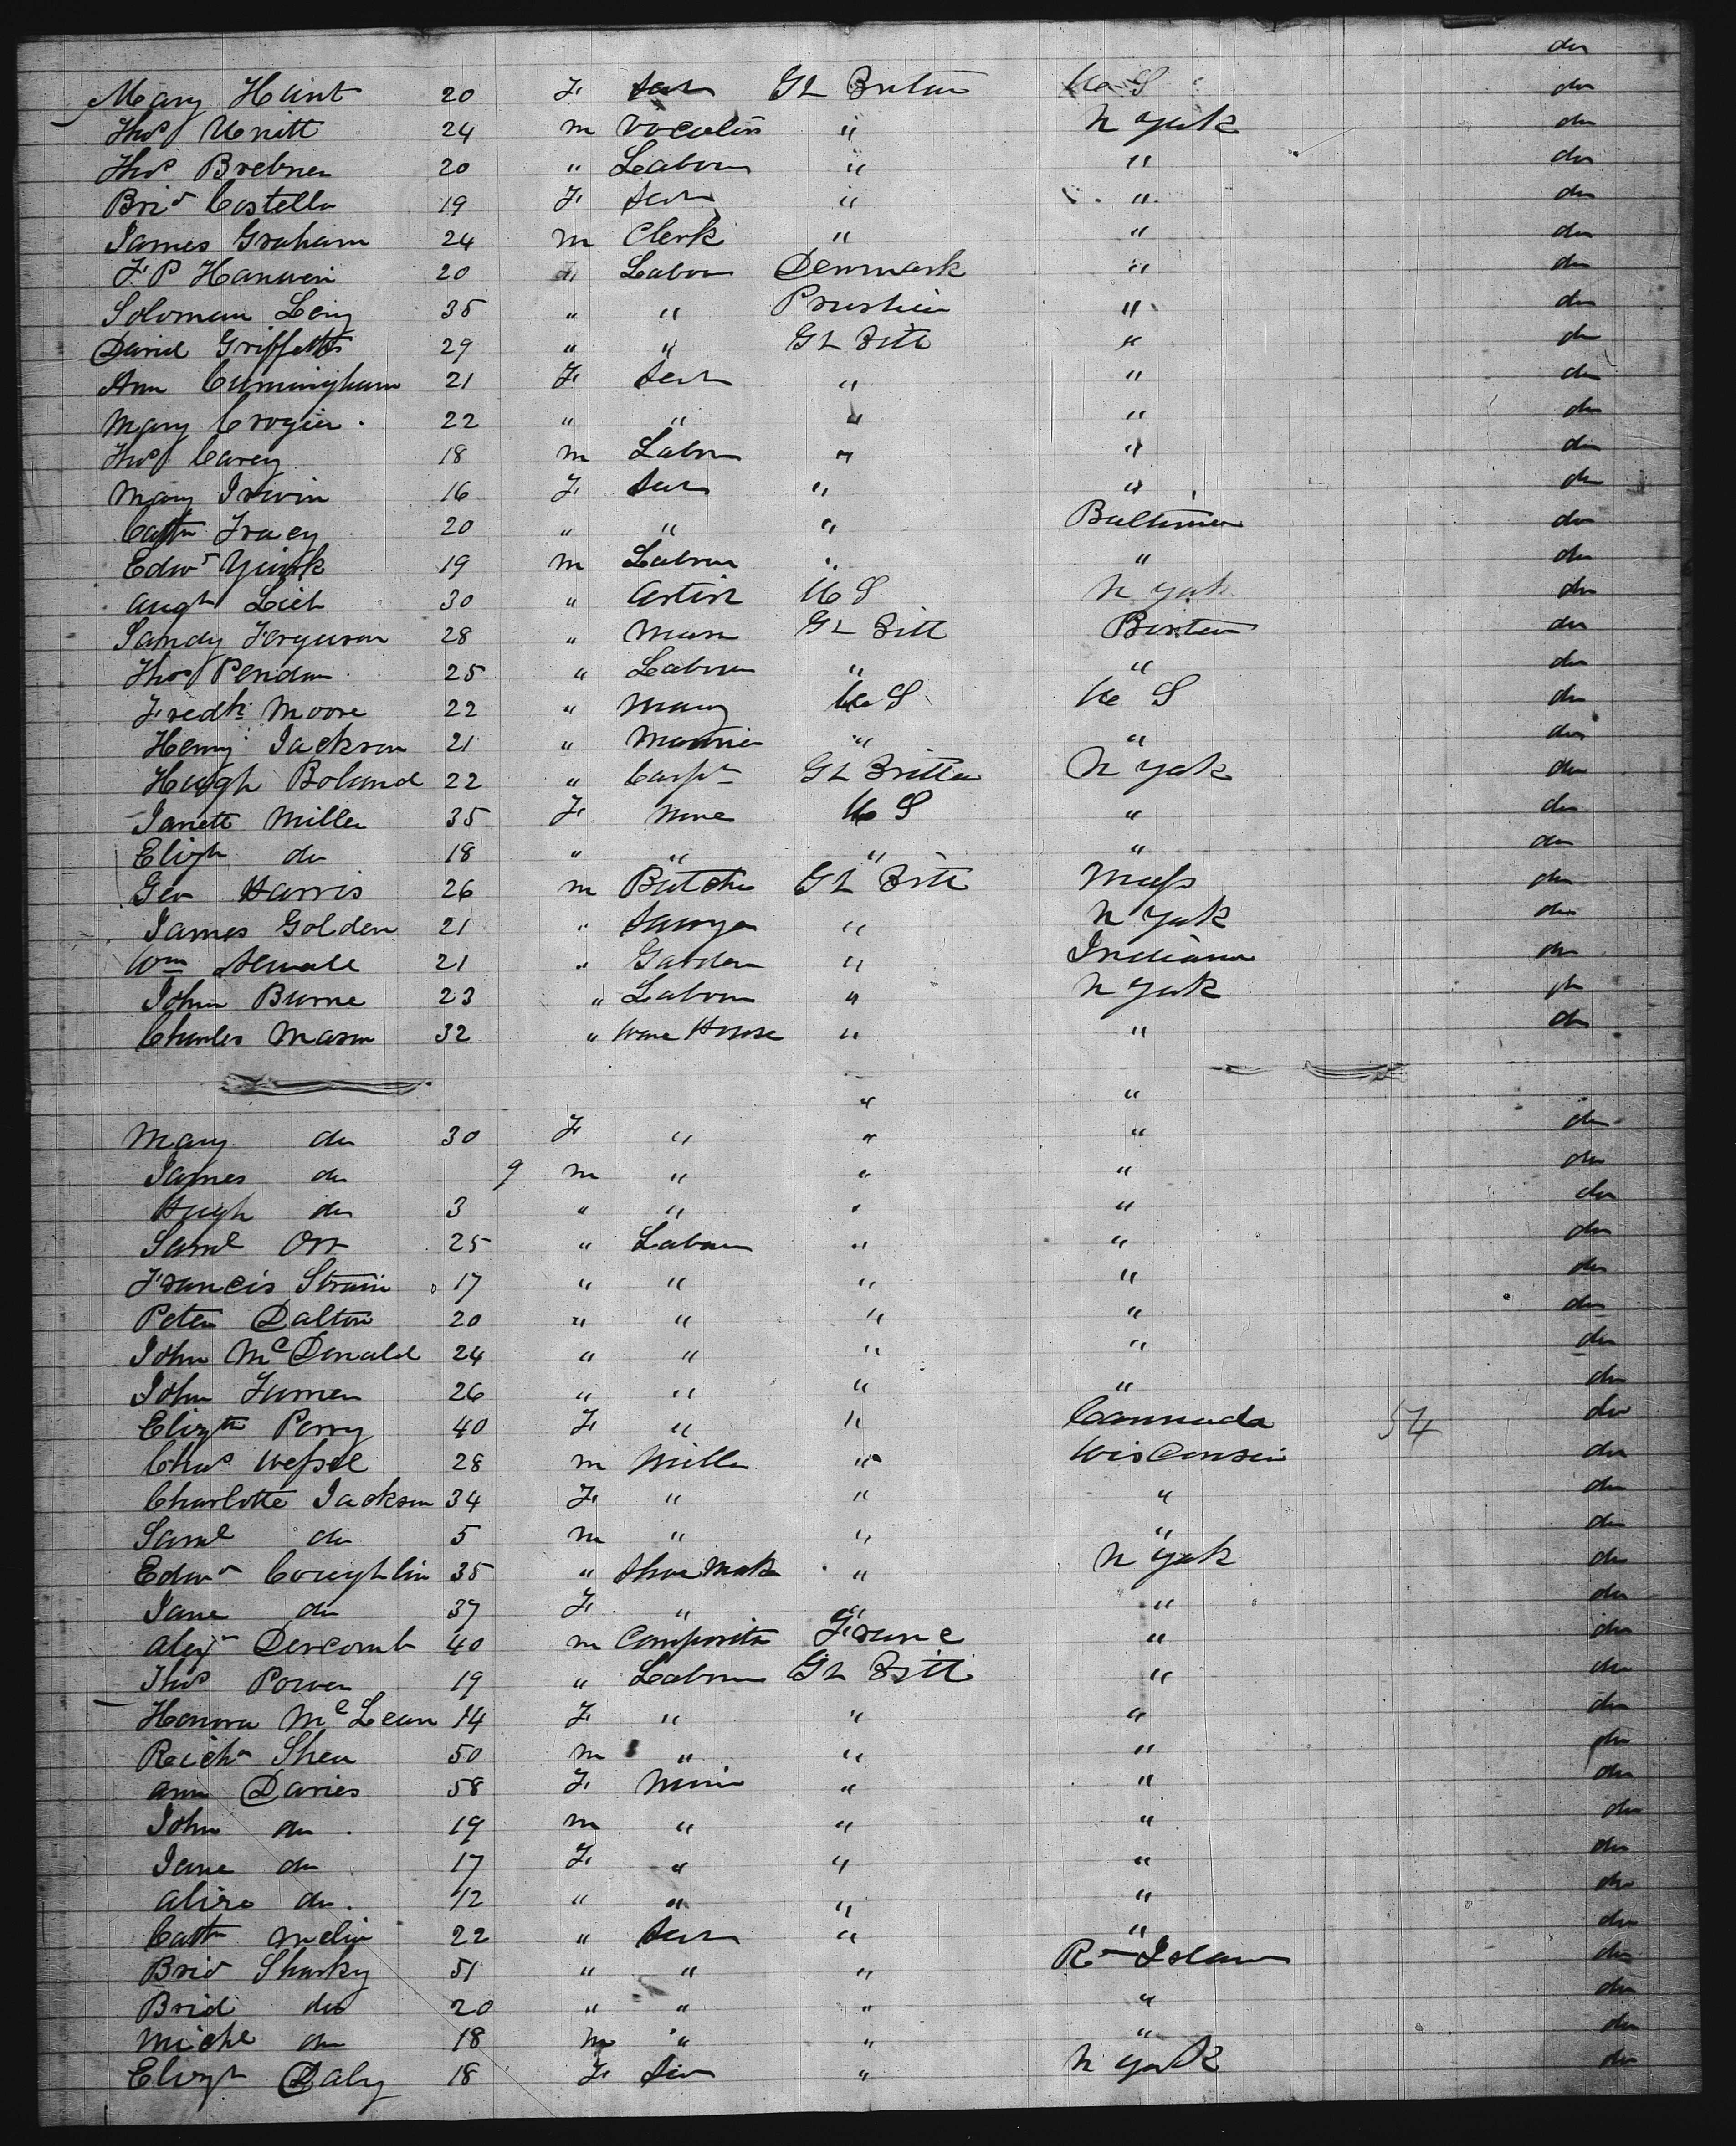 do
Mary Hunt 20 F. Serv Gt Britain U S do
Thos Unitt 24 m Vocalist " N York do
Thos Brebner 20 " Labour " " do
Brid Costello 19 F. Serv " " do
James Graham 24 m Clerk " " do
F. P Hanwen 20 Labour Denmark " do
Soloman Leiy 35 " " Prushia " do
David Griffetts 29 " " Gt Britt " do
Ann Cunningham 21 F. Serv " " do
Mary Crozier 22 " " " " do
Thos Carey 18 m Labor " " do
Mary Irwin 16 F. Serv " " do
Cathn Tracy 20 " " " Baltimore do
Edwd 19 m Labour " " do
Augt 30 " Artist U S N York do
Sandy Ferguson 28 " Mason Gt Britt Boston do
Thos 25 " Labour " " do
Fredk Moore 22 " U S U S do
Henry Jackson 21 " " " do
Hugh Boland 22 " Carpr Gt Brittan N York do
Janett Miller 35 F. None U S " do
Elizh do 18 " " " " do
Geo Harris 26 m Butcher Gt Britt Mass do
James Golden 21 " Sawyer " N York do
Wm Sewall 21 " Garden " Indiana do
John Burne 23 " Labour " N York do
Charles Mason 32 " Ware House " " do
" "
Mary do 30 F. " " " do
James do 9 m " " " do
Hugh do 3 " " " " do
Saml Orr 25 " Labour " " do
Francis Strain 17 " " " " do
Peter Dalton 20 " " " " do
John McDonald 24 " " " " do
John Turner 26 " " " " do
Elizth Perry 40 F. " " Cannada 54 do
Chas Wessel 28 m Miller " Wisconsin do
Charlotte Jackson 34 F. " " " do
Saml do 5 m " " " do
Edwd Coughlin 35 " Shoe Maker " N York do
Jane do 37 F. " " " do
Alexr Descomb 40 m Compositor France " do
Thos Power 19 " Labour Gt Britt " do
Honora McLean 14 F. " " " do
Richd Shea 50 m " " " do
Ann Davies 58 F. None " " do
John do 19 m " " " do
Jane do 17 F. " " " do
Alice do 12 " " " " do
Cathn Melin 22 " Serv " " do
Brid Sharky 51 " " " Rd Island do
Brid do 20 " " " " do
Michl do 18 m " " " do
Elizh Daly 18 F. Serv " N York do